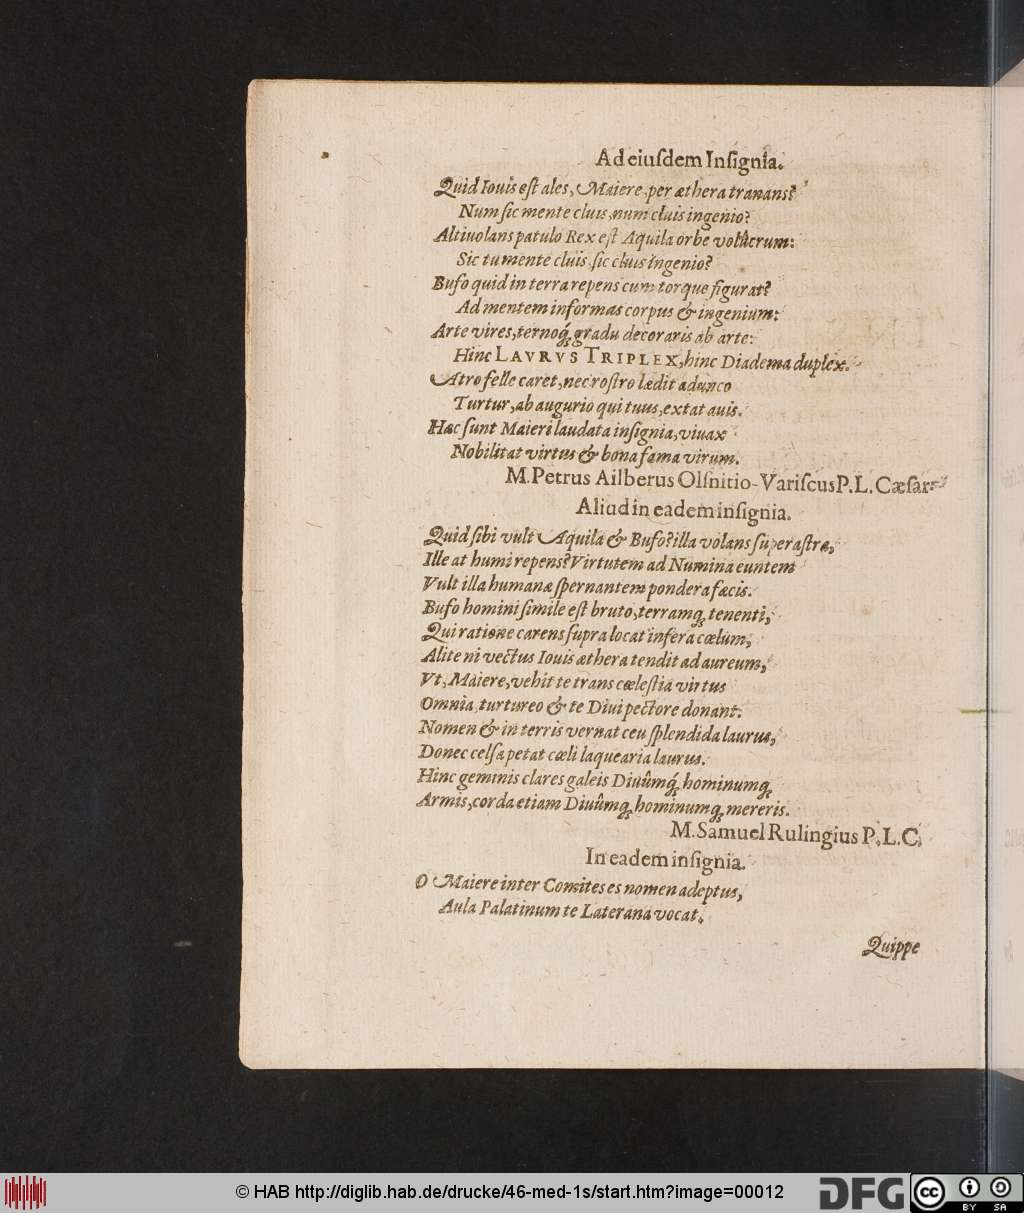 Ad eiuſdem Inſignia.
Quid Iouis eſt ales, Maiere, per æthera tranans?
Num ſic mente cluis, num cluis ingenio?
Altiuolans patulo Rex eſt Aquila orbe volûcrum:
Sic tu mente cluis, ſic cluis ingenio?
Bufo quid in terra repens cum torque figurat?
Ad mentem informas corpus & ingenium:
Arte vires, ternoq́; gradu decoraris ab arte:
Hinc LAVRVS TRIPLEX, hinc Diadema duplex.
Atro felle caret, nec roſtro lædit adunco
Turtur, ab augurio qui tuus, extat auis.
Hæc ſunt Maieri laudata inſignia, viuax
Nobilitat virtus & bona fama virum.
M. Petrus Ailberus Olſnitio-Variſcus P. L. Cæſar.
Aliud in eadem inſignia.
Quid ſibi vult Aquila & Bufo? illa volans ſuper aſtra,
Ille at humi repens? Virtutem ad Numina euntem
Vult illa humanæ ſpernantem pondera fæcis.
Bufo homini ſimile eſt bruto, terramq; tenenti,
Qui ratione carens ſupra locat infera cœlum,
Alite ni vectus Iouis æthera tendit ad aureum,
Vt, Maiere, vehit te trans cœleſtia virtus
Omnia, turtureo & te Diui pectore donant.
Nomen & in terris vernat ceu ſplendida laurus,
Donec celſa petat cœli laquearia laurus.
Hinc geminis clares galeis Diuûmq́; hominumq;
Armis, corda etiam Diuûmq; hominumq; mereris.
M. Samuel Rulingius P. L. C.
In eadem inſignia.
O Maiere inter Comites es nomen adeptus,
Aula Palatinum te Laterana vocat.
Quippe
© HAB http://diglib.hab.de/drucke/46-med-1s/start.htm?image=00012
DFG
cc
BY SA